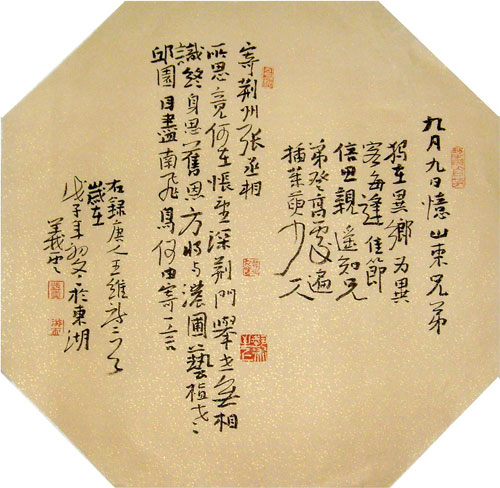 九月九日憶山東兄弟
独在異鄉為異
客每逢佳節
倍思親遙知兄
弟登高處遍
插茱萸少一人
寄荊州張丞相
所思竟何在悵望深荊門舉世無相
識終身思舊恩方將与濃圃藝植老
邱園目盡南飛鳥何由寄一言
右錄唐人王維詩二首
歲在
戊子年於東湖